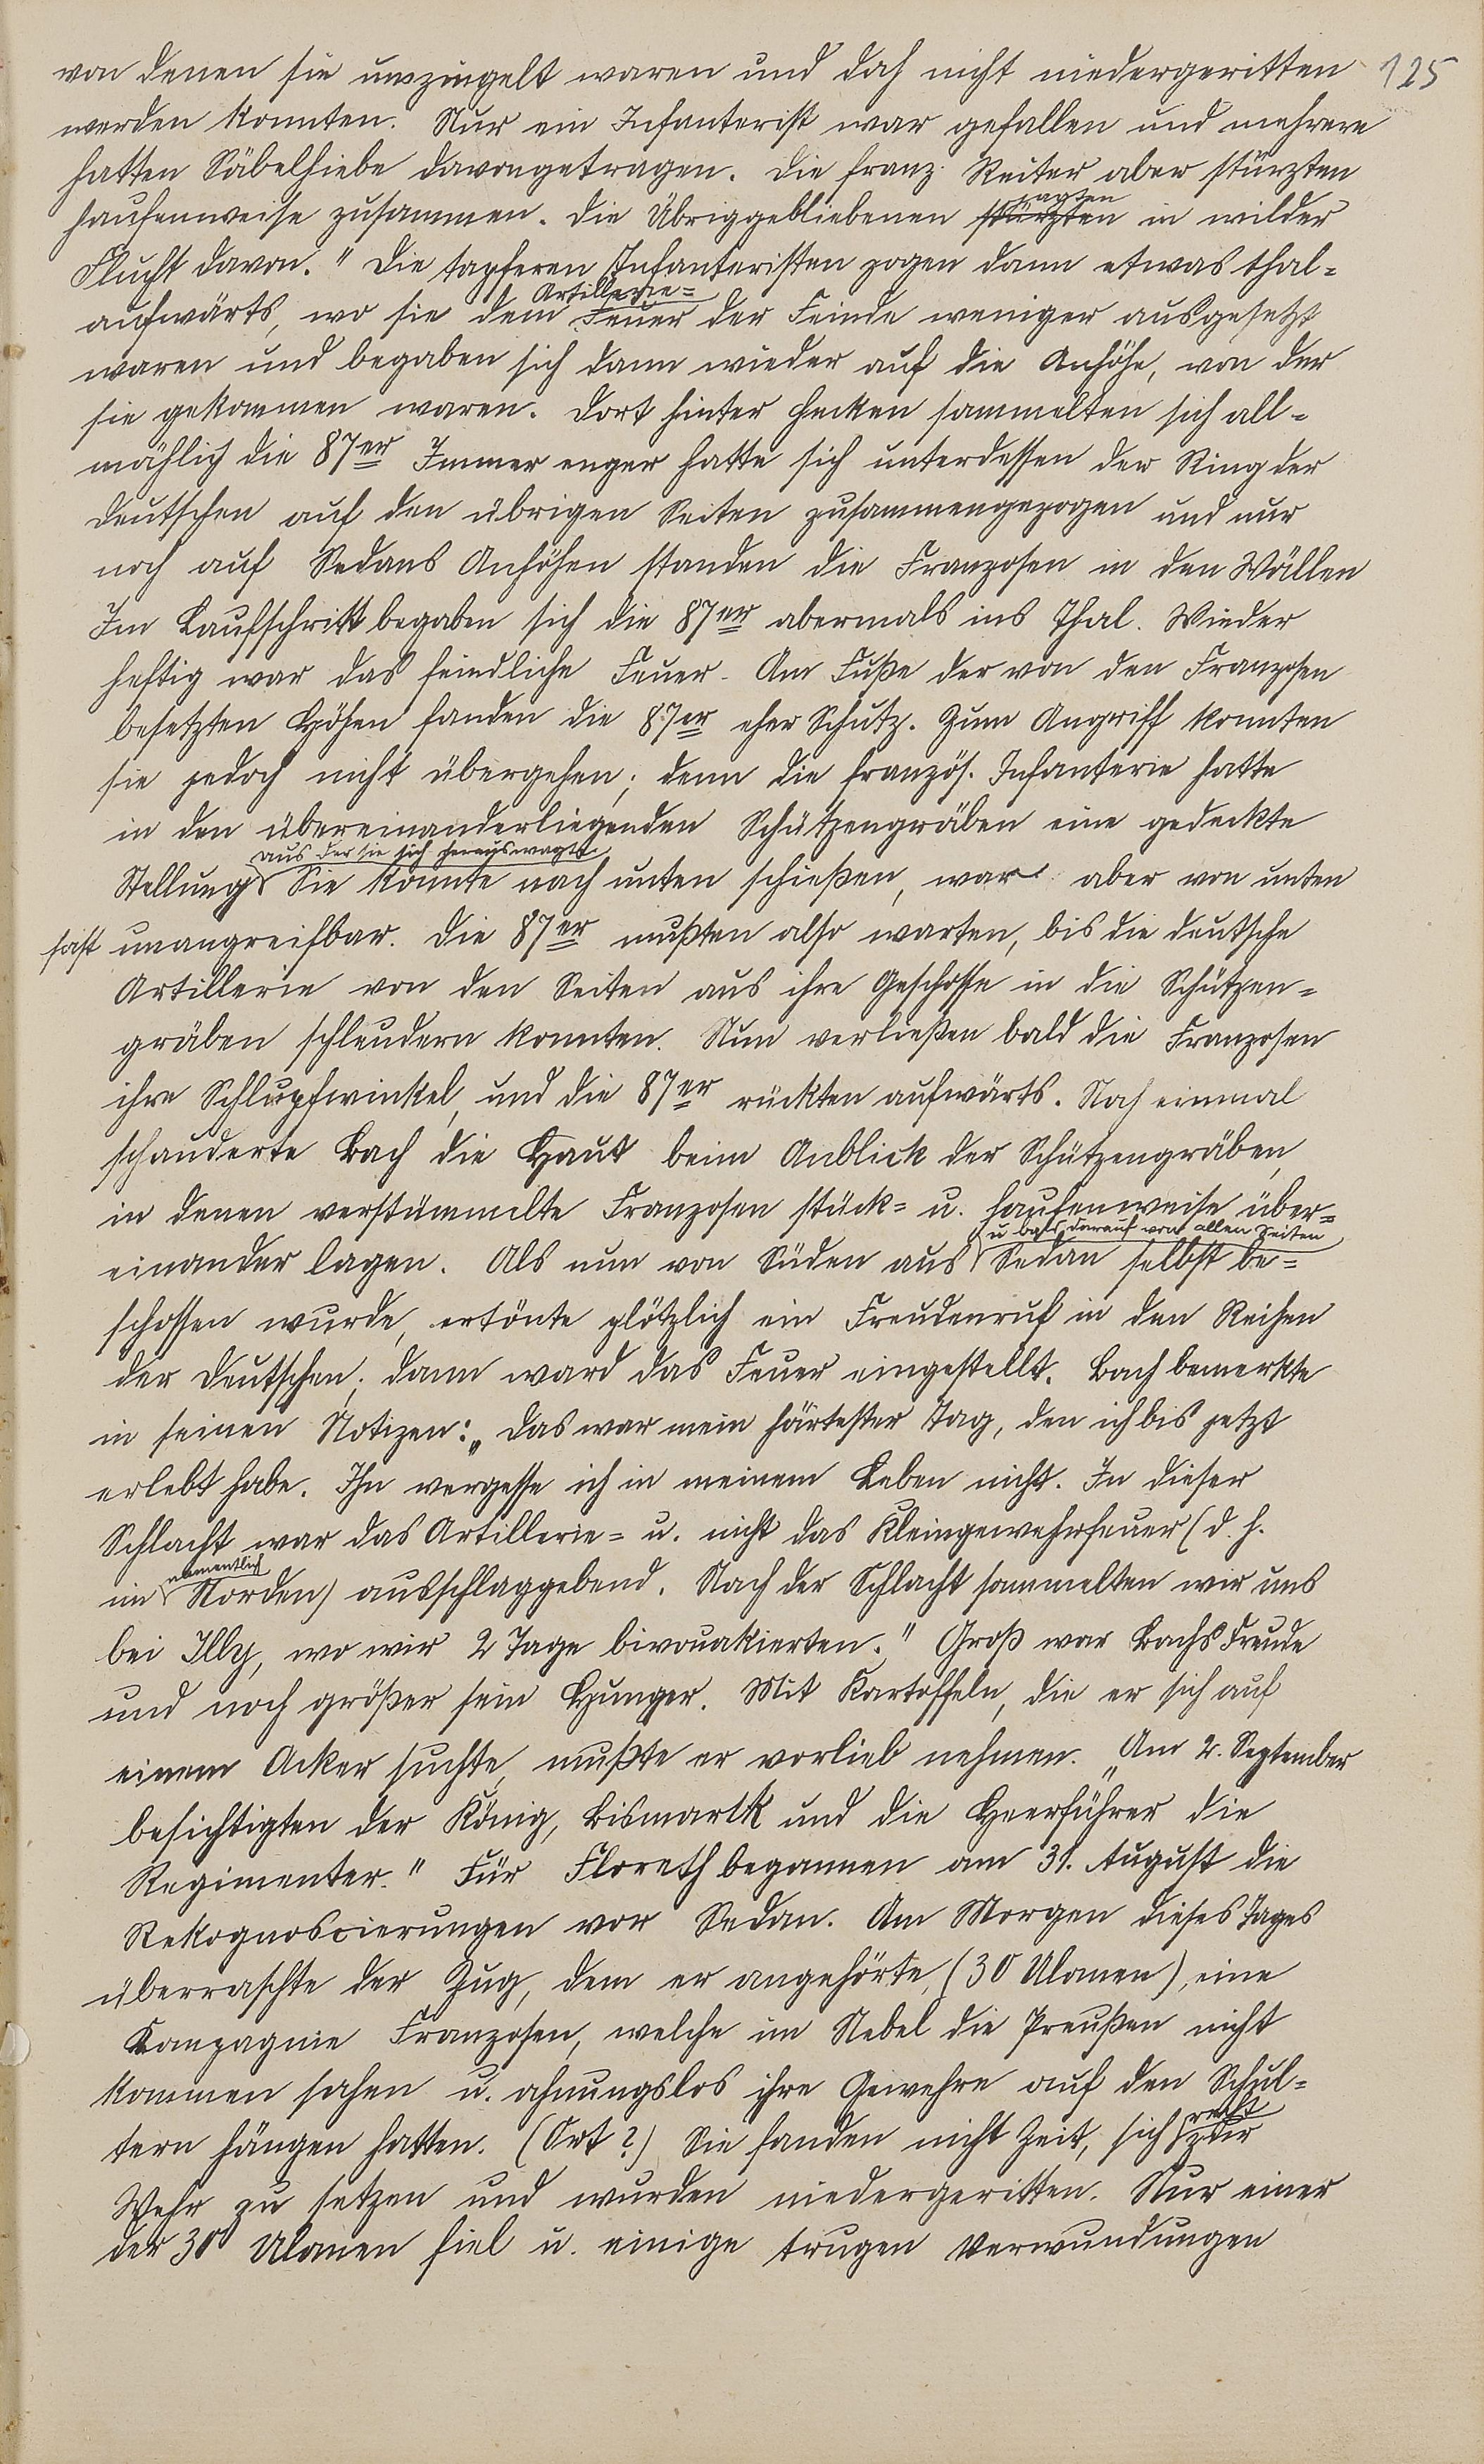 125
von denen sie umzingelt waren und doch nicht niedergeritten
werden konnten. Nur ein Infanterist war gefallen und mehrere
hatten Säbelhiebe davongetragen. Die franz. Reiter aber stürzten
jagten
haufenweise zusammen. Die Übriggebliebenen stürzten in wilder
Flucht davon." Die tapferen Infanteristen zogen dann etwas thal-
Artillerie-
aufwärts, wo sie dem Feuer der Feinde weniger ausgesetzt
waren und begaben sich dann wieder auf die Anhöhe, von der
sie gekommen waren. Dort hinter Hecken sammelten sich all-
mählich die 87er Immer enger hatte sich unterdessen der Ring der
Deutschen auf den übrigen Seiten zusammengezogen und nur
noch auf Sedans Anhöhen standen die Franzosen in den Wällen
Im Laufschritt begaben sich die 87er abermals ins Thal. Wieder
heftig war das feindliche Feuer. Am Fuße der von den Franzosen
besetzten Höhen fanden die 87er eher Schutz. Zum Angriff konnten
sie jedoch nicht übergehen; denn die französ. Infanterie hatte
in den übereinanderliegenden Schützengräben eine gedeckte
aus der sie sich herauswagte
Stellung Sie konnte nach unten schießen, war aber von unten
fast unangreifbar. Die 87er mußten also warten, bis die deutsche
Artillerie von den Seiten aus ihre Geschosse in die Schützen-
gräben schleudern konnten. Nun verließen bald die Franzosen
ihre Schlupfwinkel, und die 87er rückten aufwärts. Noch einmal
schauderte Bach die Haut beim Anblick der Schützengräben,
in denen verstümmelte Franzosen stück- u. haufenweise über-
u bald darauf von allen Seiten
einander lagen. Als nun von Süden aus Sedan selbst be-
schossen wurde, ertönte plötzlich ein Freudenruf in den Reihen
der Deutschen; dann ward das Feuer eingestellt. Bach bemerkte
in seinen Notizen: „Das war mein härtester Tag, den ich bis jetzt
erlebt habe. Ihn vergesse ich in meinem Leben nicht. In dieser
Schlacht war das Artillerie- u. nicht das Kleingewehrfeuer (d. h.
namentlich
im Norden) ausschlaggebend. Nach der Schlacht sammelten wir uns
bei Illy, wo wir 2 Tage bivouakierten." Groß war Bachs Freude
und noch größer sein Hunger. Mit Kartoffeln, die er sich auf
einem Acker suchte, mußte er vorlieb nehmen. „Am 2. September
besichtigten der König, Bismarck und die Heerführer die
Regimenter." Für Floreth begannen am 31. August die
Rekognoscierungen vor Sedan. Am Morgen dieses Tages
überraschte der Zug, dem er angehörte, (30 Ulanen), eine
Kompagnie Franzosen, welche im Nebel die Preußen nicht
kommen sahen u. ahnungslos ihre Gewehre auf den Schul-
recht
tern hängen hatten. (Ort?) Sie fanden nicht Zeit, sich zur
Wehr zu setzen und wurden niedergeritten. Nur einer
der 30 Ulanen fiel u. einige trugen Verwundungen